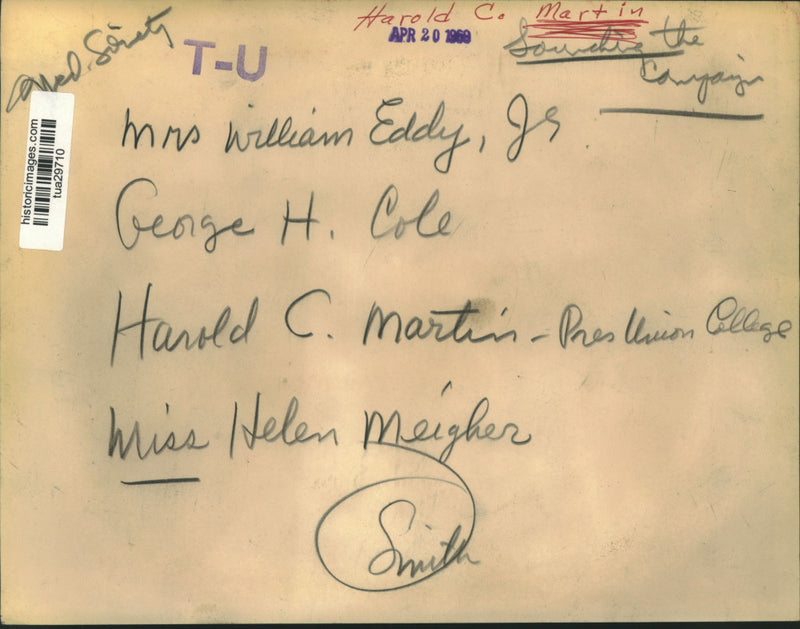 Harold C. Martin
APR 20 1969
Society
T-U
the
Campaign
historicimages.com
tua29710
Mrs William Eddy, Jr
George H. Cole
Harold C. Martin - Pres Union College
Miss Helen Meigher
Smith